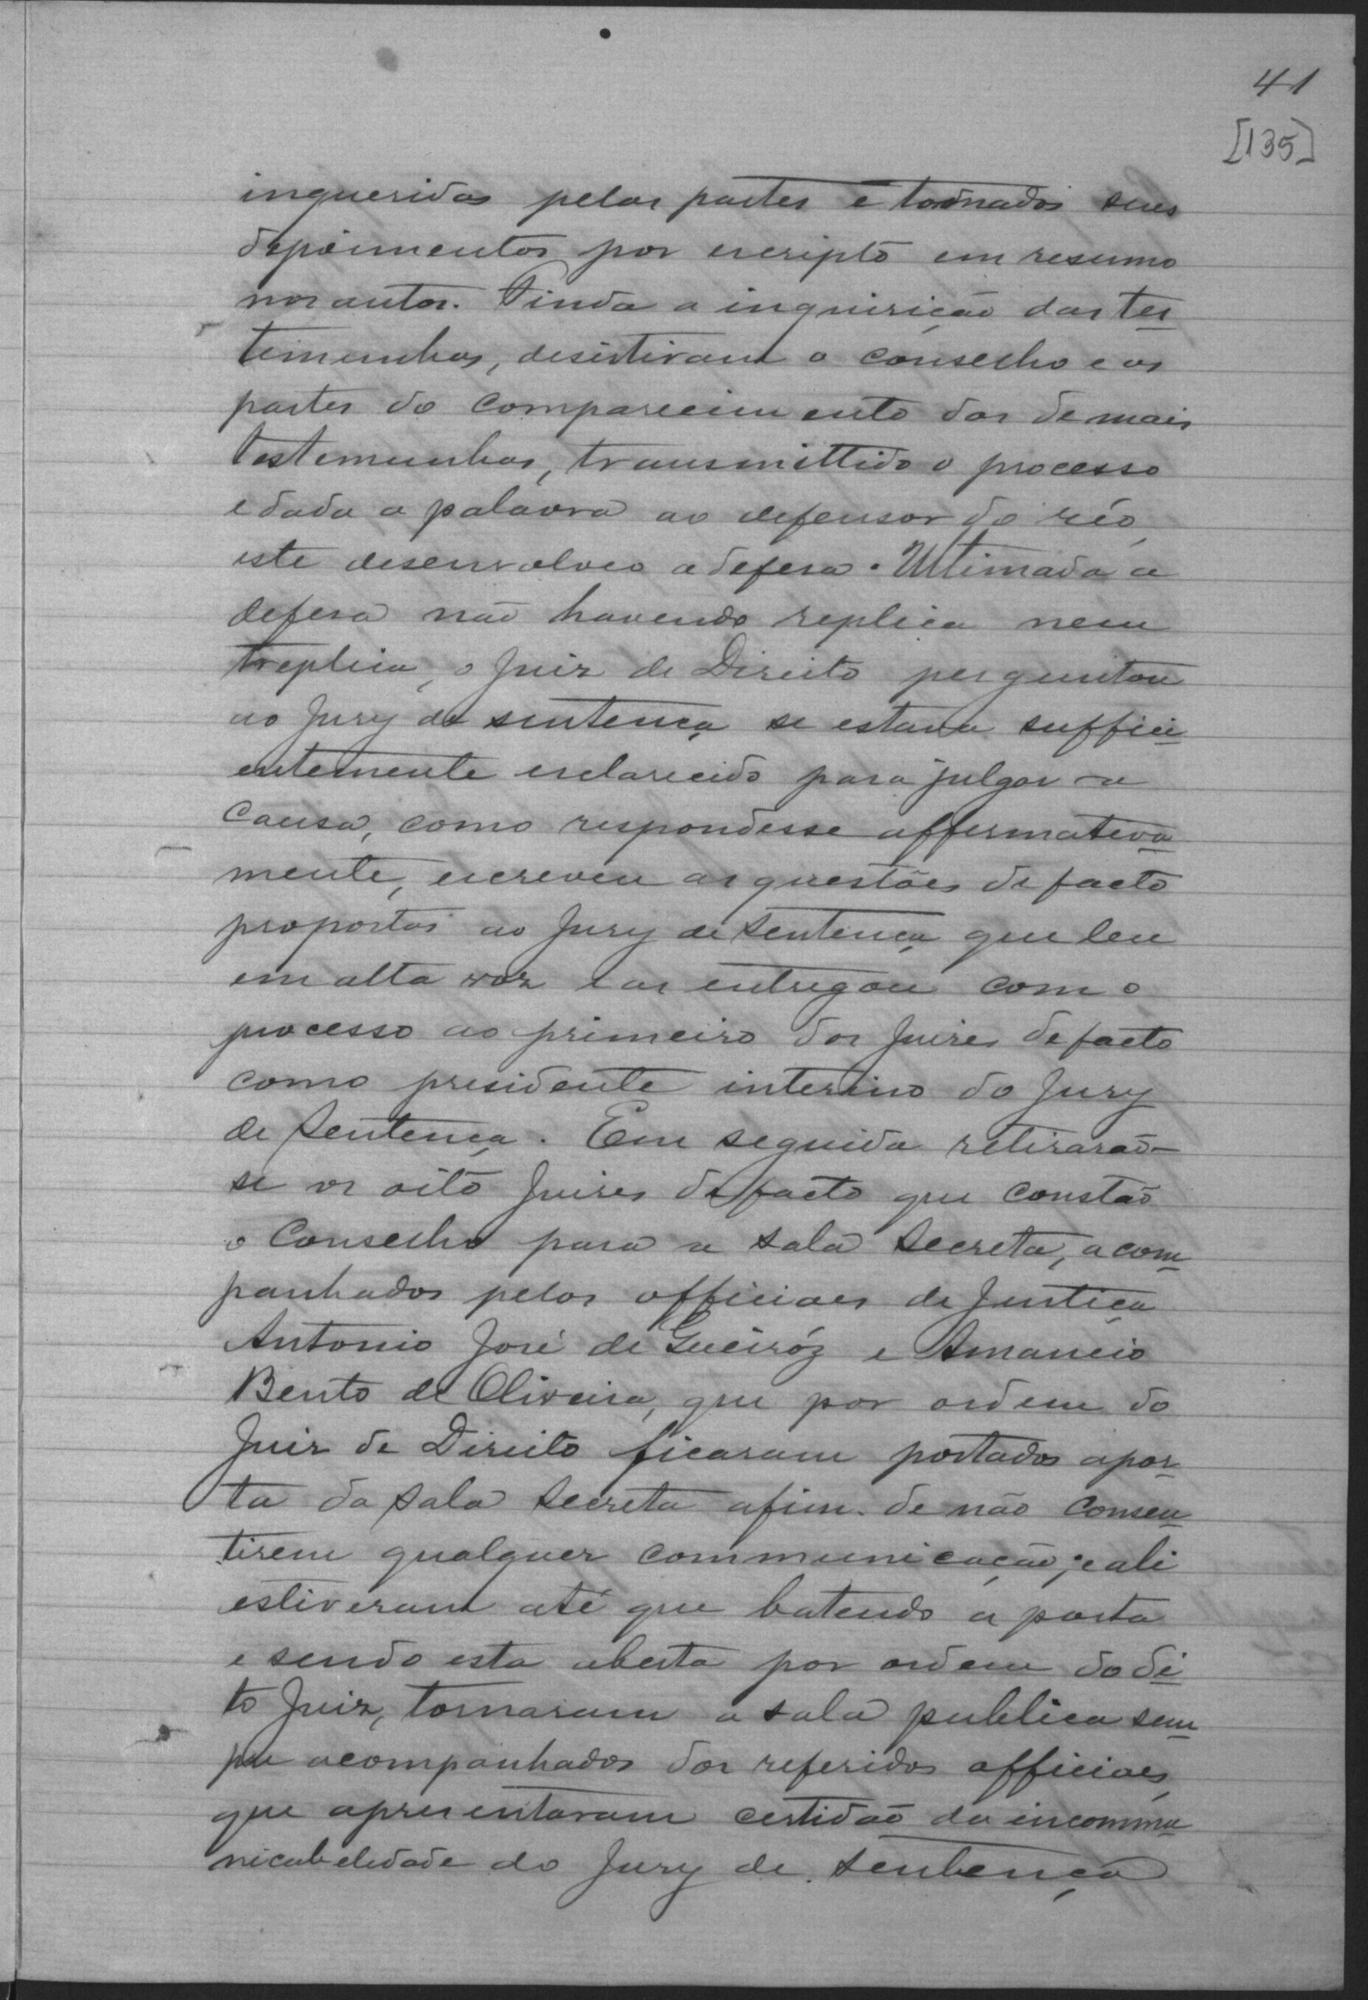 41
[135]
inqueridas pelas partes e tomados seus
depoimentos por escripto em resumo
nos autos. Finda a inquirição das tes-
temunhas, desistiram o conselho e as
partes do comparecimento das demais
testemunhas, transmittido o processo
e dada a palavra ao defensor do réo,
este desenvolveo a defesa. Ultimada a
defesa não havendo replica nem
treplica, o Juiz de Direito perguntou
ao Jury de sentença se estava suffici-
entemente esclarecido para julgar a
causa, como respondesse affermativa-
mente, escreveu as questões de facto
propostas ao Jury de Sentença que leu
em alta voz e as entregou com o
processo ao primeiro dos Juizes de facto
como presidente interino do Jury
de Sentença. Em seguida retirarão-
se os oito Juizes de facto que constão
o Conselho para a sala Secreta, acom-
panhados pelos officiaes de Justiça
Antonio José de Gueiróz e Amancio
Bento de Oliveira, que por ordem do
Juiz de Direito ficaram postados a por-
ta da sala secreta afim de não consen-
tirem qualquer communicação; e ali
estiveram até que batendo a porta
e sendo esta aberta por ordem do di-
to Juiz, tornaram a sala publica sem-
pre acompanhados dos referidos officiaes,
que apresentaram certidão da incommu-
nicabelidade do Jury de Sentença